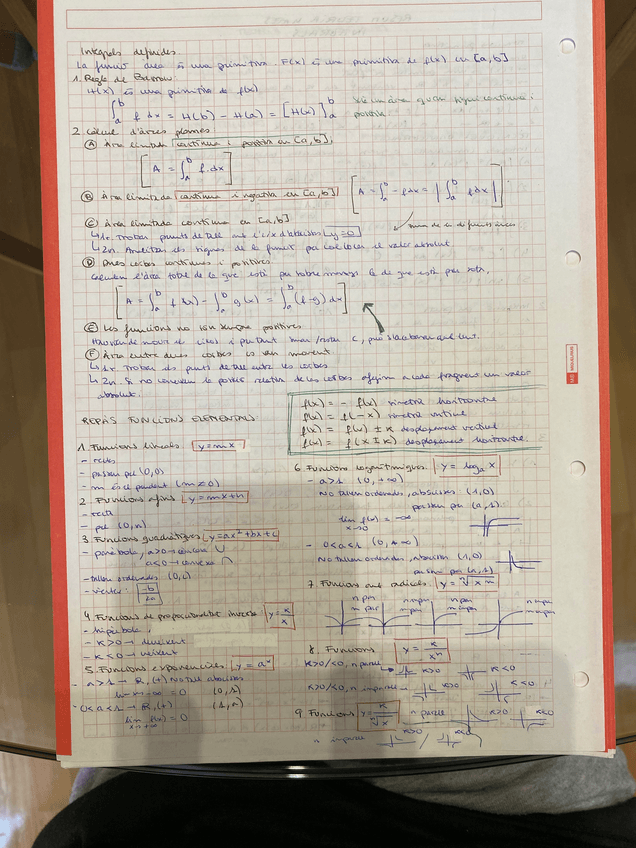 Integrals definides
La funció àrea és una primitiva. F(x) és una primitiva de f(x) en [a,b]
1. Regla de Barrow:
H(x) és una primitiva de f(x)
∫ₐᵇ f dx = H(b) - H(a) = [H(x)]ₐᵇ
positiva
2. Càlcul d'àrees planes
Ⓐ Àrea limitada contínua i positiva en [a,b].
[A = ∫ₐᵇ f·dx]
Ⓑ Àrea limitada contínua i negativa en [a,b] [A = ∫ₐᵇ -f dx = |∫ₐᵇ f dx|]
Ⓒ Àrea limitada contínua en [a,b]
↳ 1r. Trobar punts de tall amb l'eix d'abscisses [y=0]
suma de les diferents àrees
↳ 2n. Analitzar els signes de la funció per calcular el valor absolut.
Ⓓ Dues corbes contínues i positives
Calculem l'àrea total de la que està per sobre menys la de que està per sota.
[A = ∫ₐᵇ f(x) - ∫ₐᵇ g(x) = ∫ₐᵇ (f-g) dx]
Ⓔ Les funcions no són sempre positives
Ⓕ Àrea entre dues corbes
↳ 1r. Trobar els punts de tall entre les corbes
↳ 2n. Si no coneixem la posició relativa de les corbes afegim a cada fragment un valor
absolut.
f(x) = - f(x) simetria horitzontal
f(x) = f(-x) simetria vertical
f(x) = f(x) ± k desplaçament vertical
f(x) = f(x ± k) desplaçament horitzontal.
REPÀS FUNCIONS ELEMENTALS
1. Funcions lineals y=mx
- recta
- passen pel (0,0)
- m és el pendent (m≠0)
2. Funcions afins y=mx+n
- recta
- pel (0,n)
3. Funcions quadràtiques y=ax²+bx+c
- paràbola, a>0 → còncava ∪
a<0 → convexa ∩
- tallen ordenades (0,c)
- vèrtex: -b/2a
4. Funcions de proporcionalitat inversa y=k/x
- hipèrbola,
- k>0 → decreixent
- k<0 → creixent
5. Funcions exponencials y=aˣ
- a>1 → R, (+) No tall abscisses
lim -∞ = 0 (0,1)
- 0<a<1 → R, (+) (1,a)
lim f(x) = 0
x→+∞
6. Funcions logarítmiques y=logₐ x
- a>1 (0,+∞)
No tallen ordenades, abscisses (1,0)
passen per (a,1).
lim f(x) = -∞
x→0
- 0<a<1 (0,+∞)
No tallen ordenades, abscisses (1,0)
passen per (a,1)
7. Funcions amb radicals. y=ⁿ√xᵐ
n parell
m parell
8. Funcions y=k/xⁿ
k>0/<0, n parell k>0 k<0
k>0/<0, n imparell k>0 k<0
9. Funcions y=k/ⁿ√x n parell k>0 k<0
n imparell k>0 / k<0
MIQUELRIUS